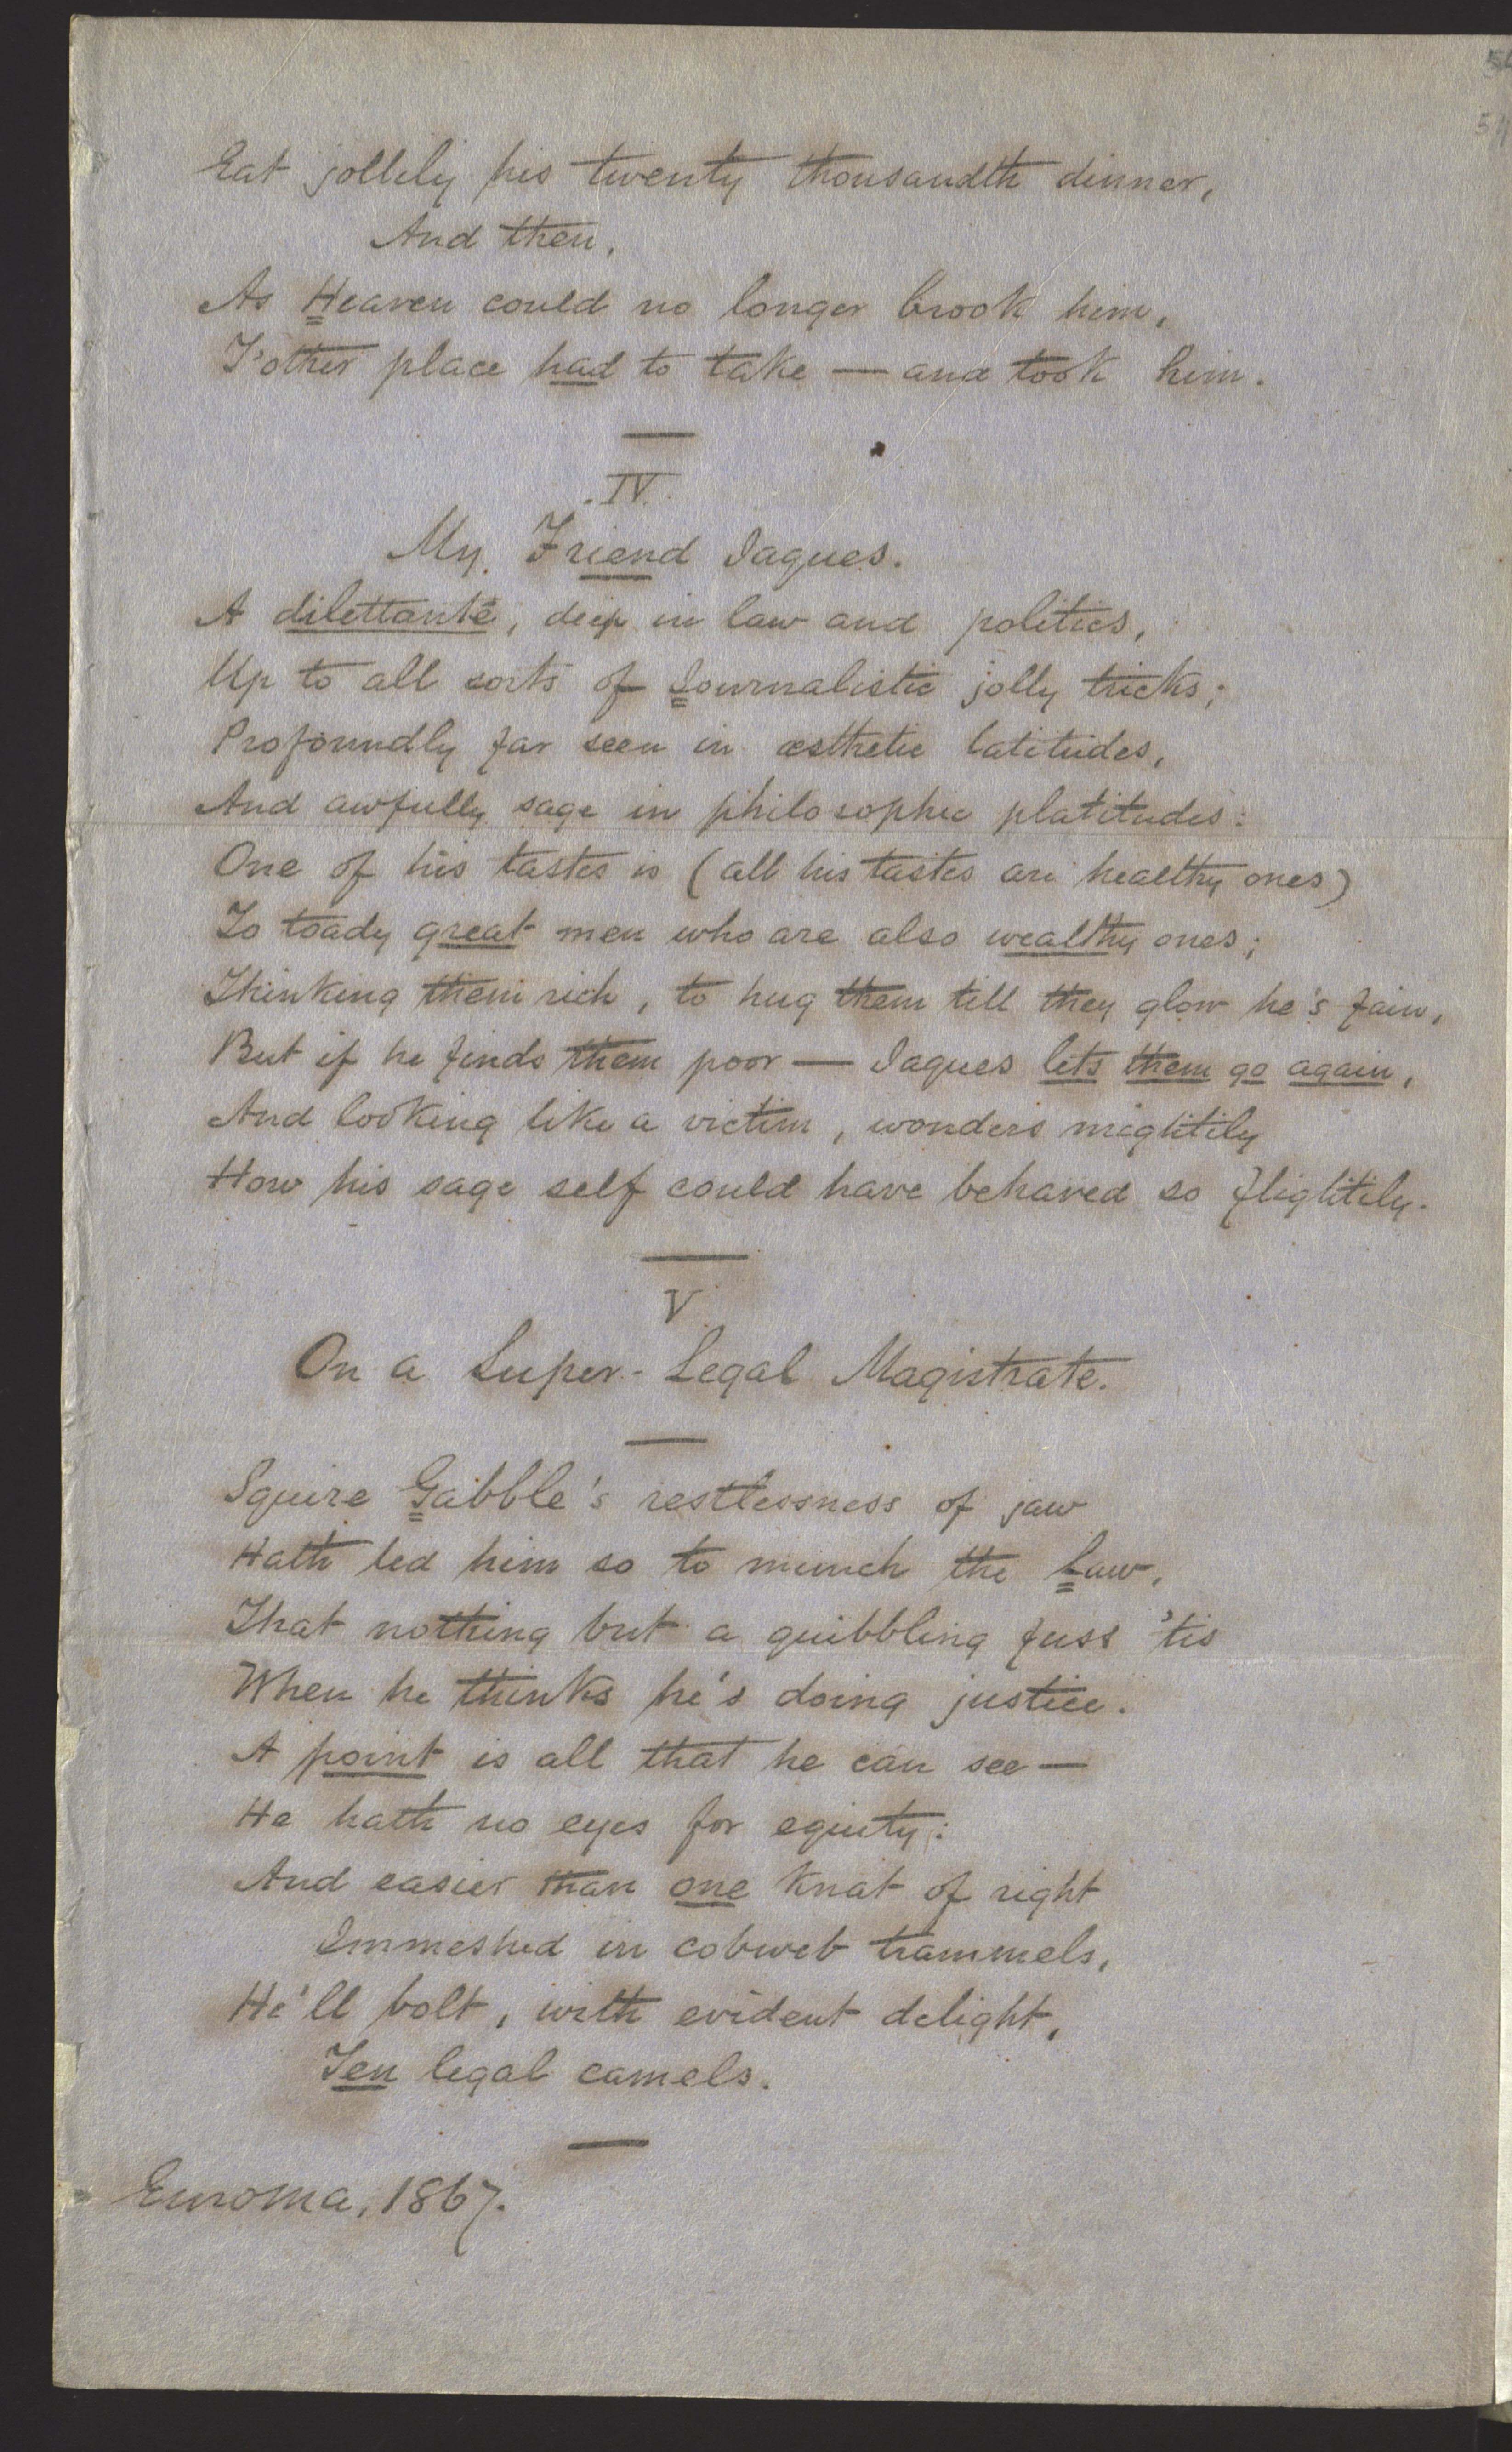 Eat jollily his twenty thousandth dinner,
And then,
As Heaven could no longer brook him,
T'other place had to take — and took him.
IV.
My Friend Jaques.
A dilettante, deep in law and politics,
Up to all sorts of Journalistic jolly tricks;
Profoundly far seen in æsthetic latitudes,
And awfully sage in philosophic platitudes:
One of his tastes is (all his tastes are healthy ones)
To toady great men who are also wealthy ones;
Thinking them rich, to hug them till they glow he's fain,
But if he finds them poor — Jaques lets them go again,
And looking like a victim, wonders mightily
How his sage self could have behaved so flightily.
V
On a Super-Legal Magistrate.
Squire Gabble's restlessness of jaw
Hath led him so to munch the Law,
That nothing but a quibbling fuss 'tis
When he thinks he's doing justice.
A point is all that he can see —
He hath no eyes for equity:
And easier than one Knat of right
Immeshed in cobweb trammels,
He'll bolt, with evident delight,
Ten legal camels.
Euroma, 1867.